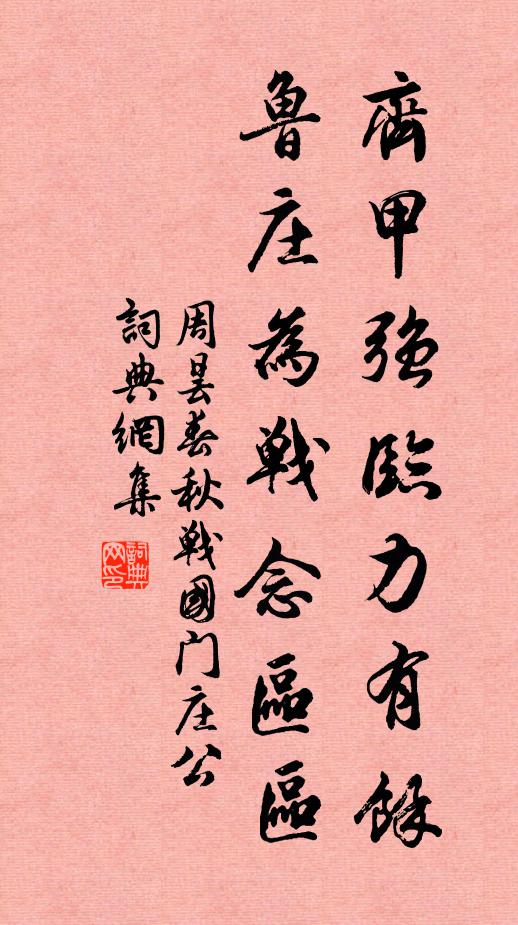 齊甲強臨力有餘
魯庄為戰念區區
周曇春秋戰國门庄公
詞典網集
詞典网印